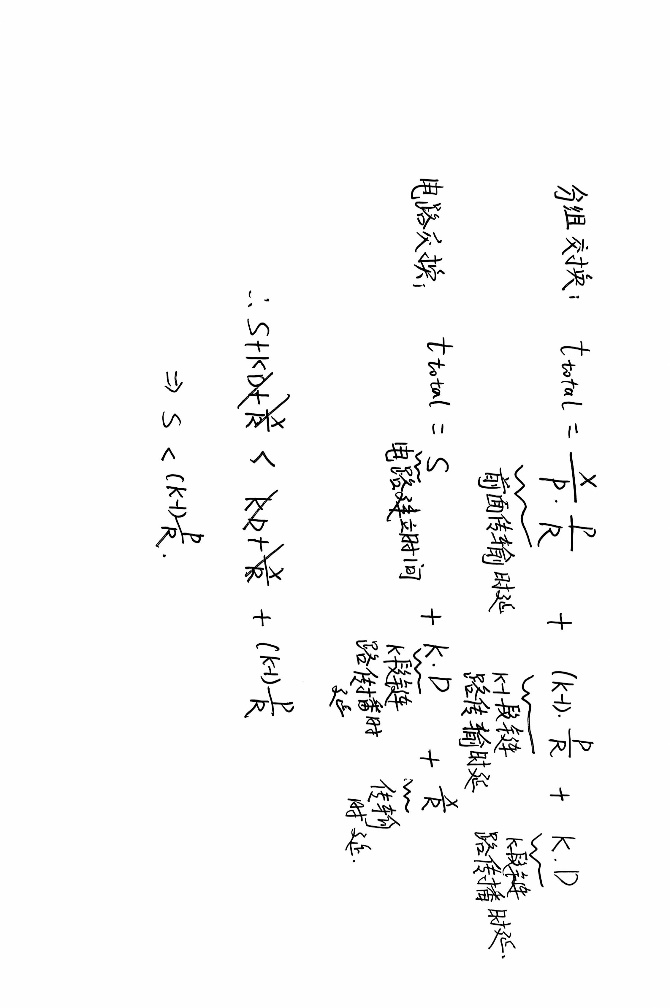 分组交换: t total = X/P · P/R + (k-1)· P/R + K·D
前面传输时延 k-1段链路传输时延 k段链路传播时延.
电路交换: t total = S + K·D + X/R
电路建立时间 k段链路传播时延 传输时延.
∴ S+KD+X/R < KD+X/R + (k-1)P/R
⇒ S < (k-1)P/R.